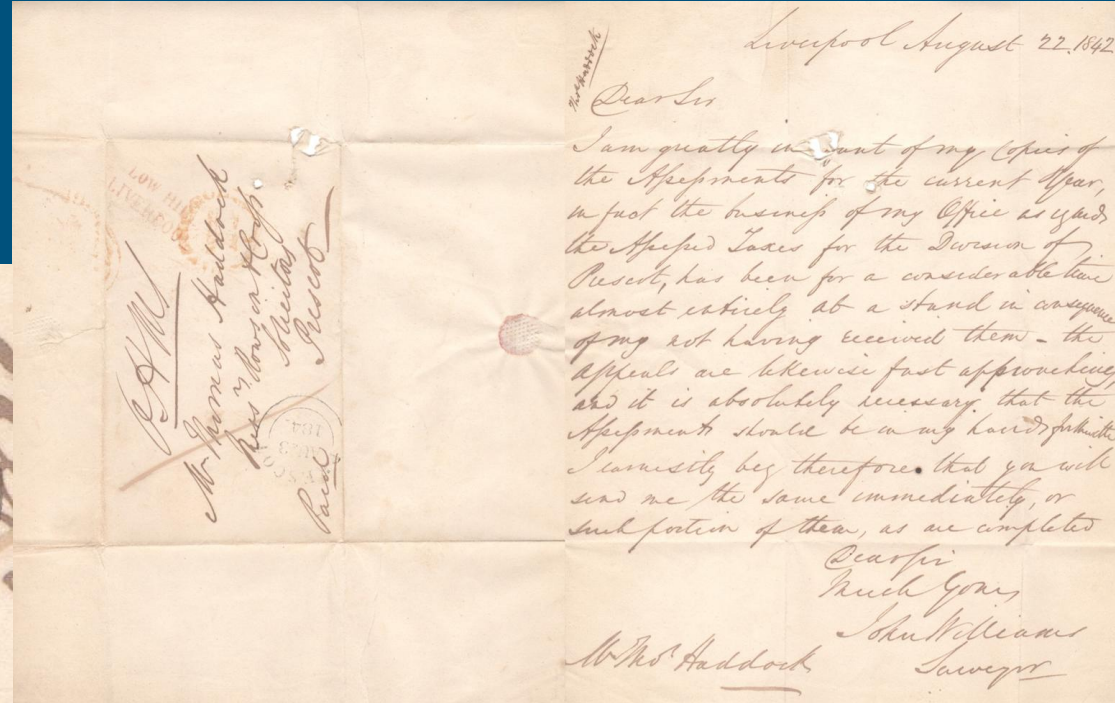 OHMS
Mr Thomas Haddock
Messrs Rowson & Cross
Solicitors
Prescot
Paid
LOW HILL
LIVERPOO
Thos Haddock
Liverpool August 22. 1842
Dear Sir
I am greatly in want of my Copies of
the Assessments for the current Year,
in fact the business of my Office as regards
the Assessed Taxes for the Division of
Prescot, has been for a considerable time
almost entirely at a stand in consequence
of my not having received them - the
Appeals are likewise fast approaching
and it is absolutely necessary that the
Assessments should be in my hands forthwith
I earnestly beg therefore that you will
send me the same immediately, or
such portion of them, as are completed
Dear Sir
Much Yours
John Williams
Surveyor
Mr Thos Haddock